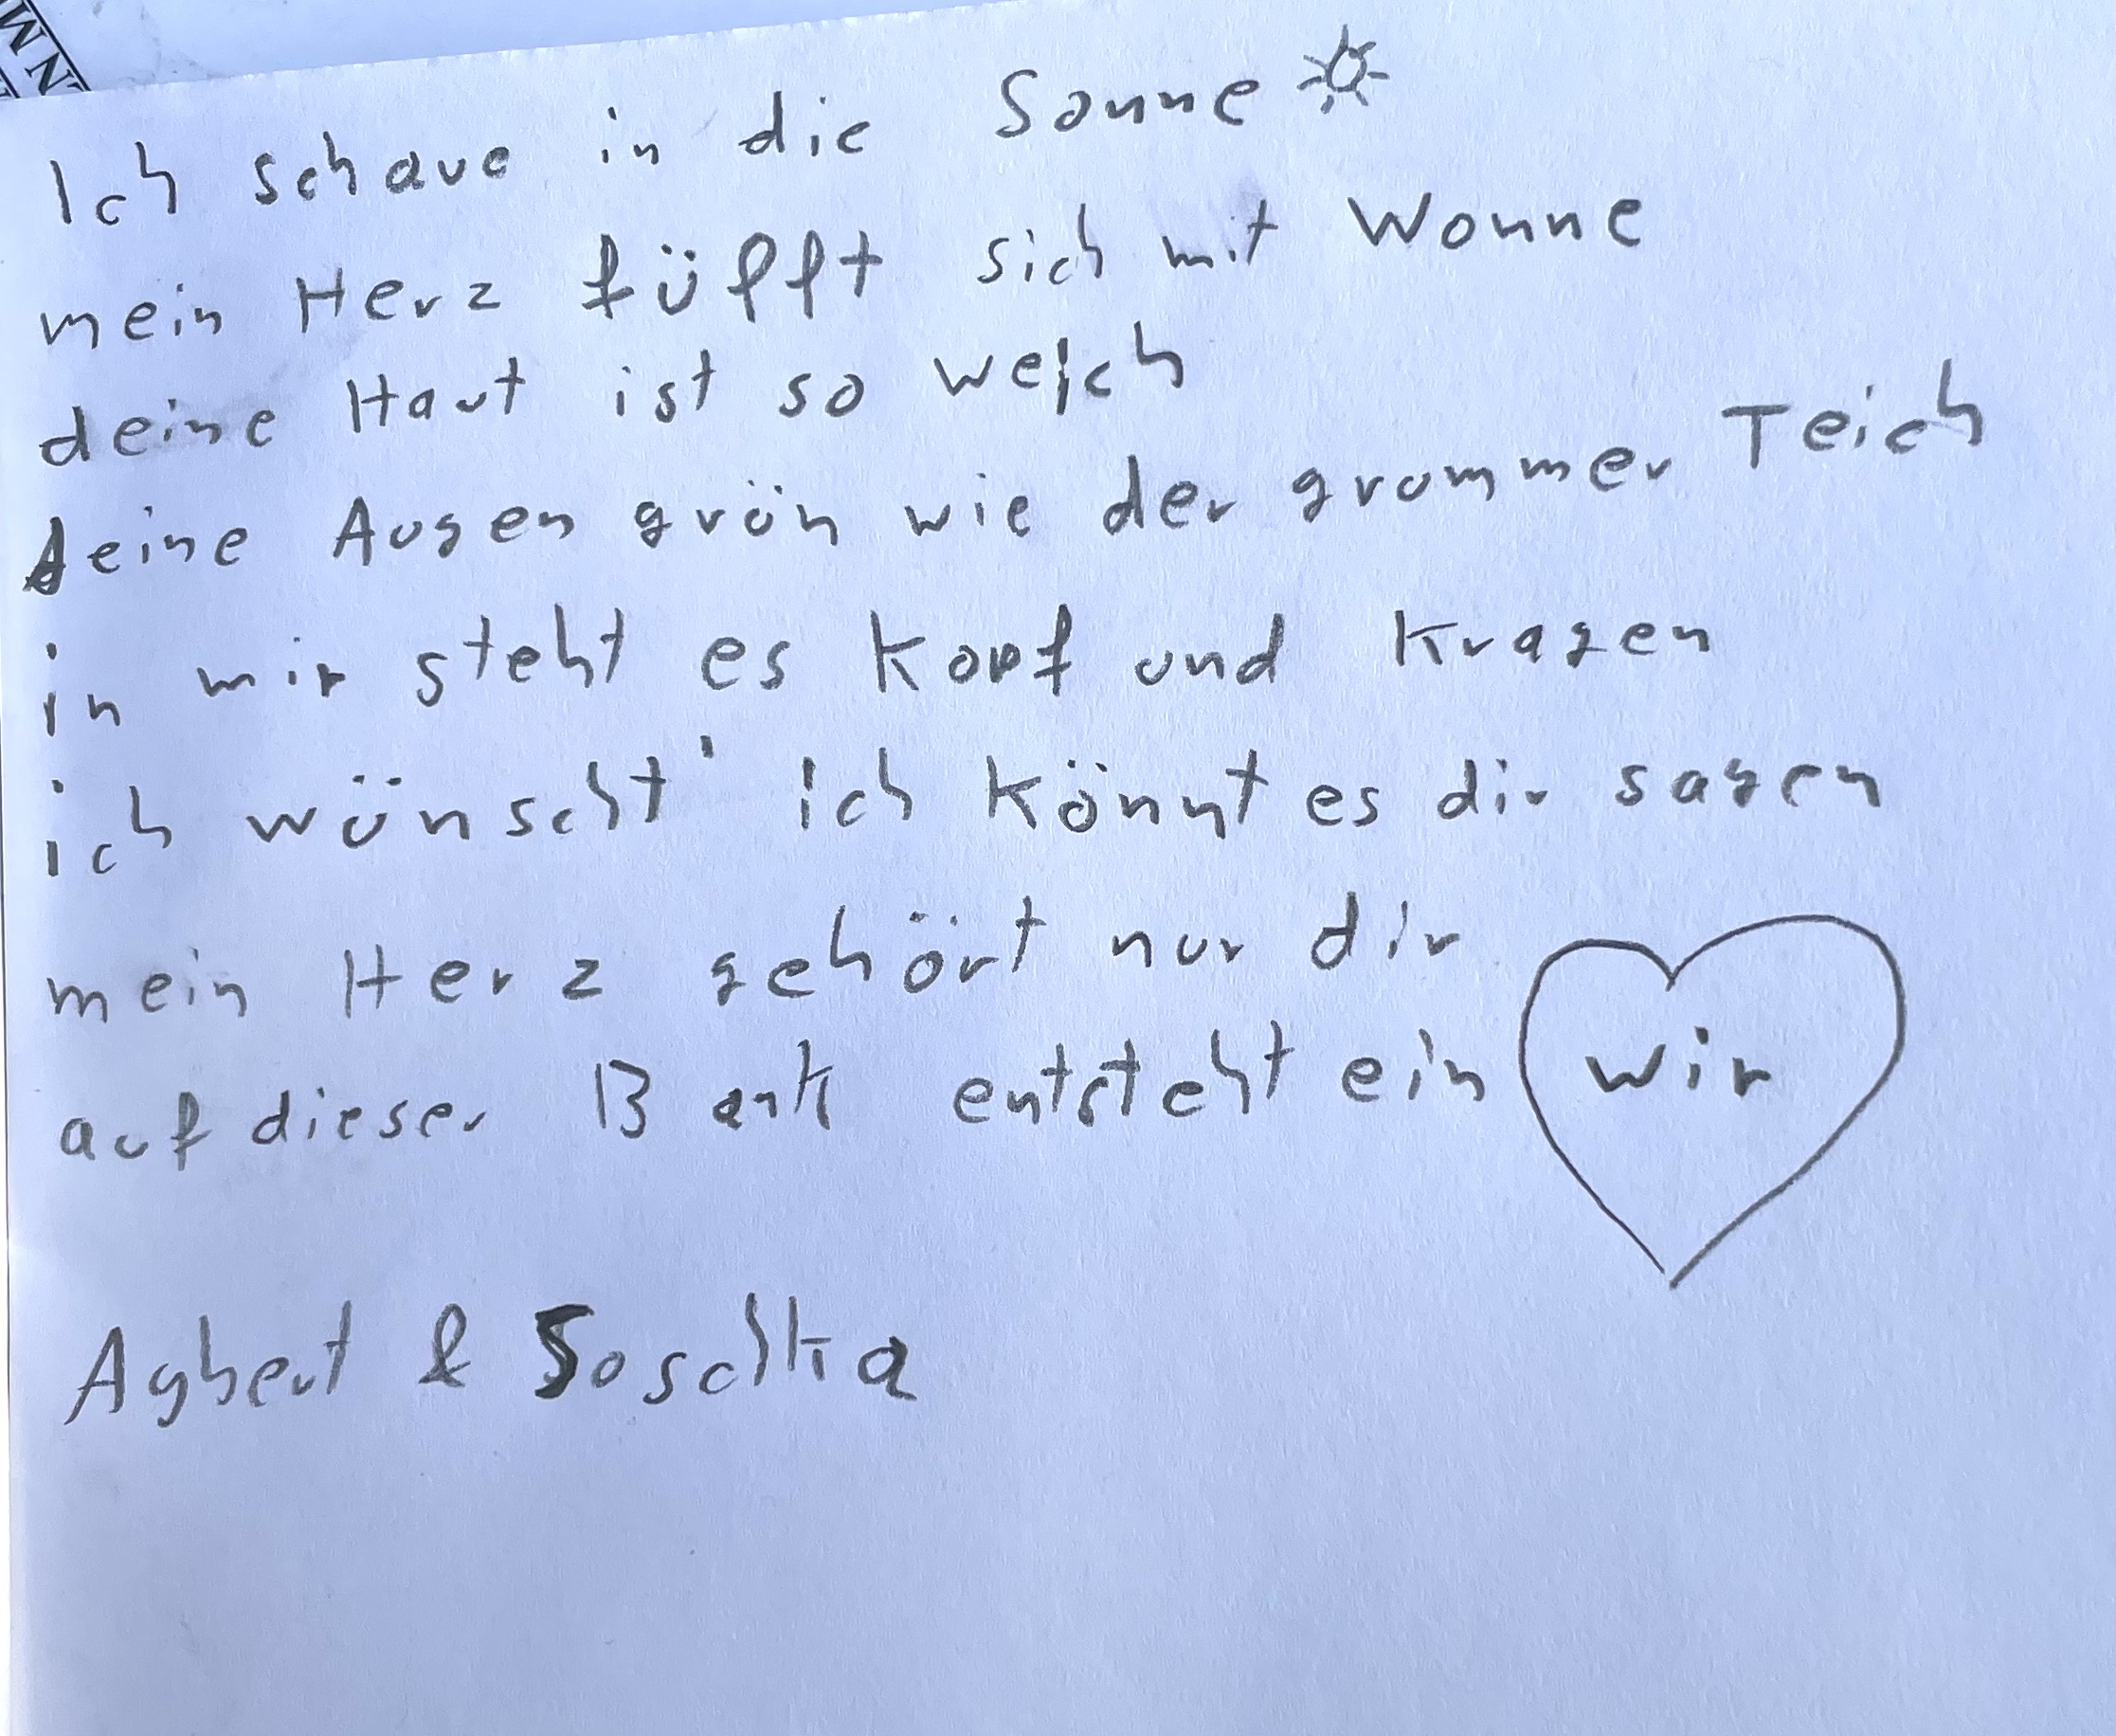 Ich schaue in die Sonne
mein Herz füllt sich mit Wonne
deine Haut ist so weich
deine Augen grün wie der grummer Teich
in mir steht es Kopf und Kragen
ich wünscht' ich könnt es dir sagen
mein Herz gehört nur dir
auf dieser Bank entsteht ein wir
Agbert & Soschka